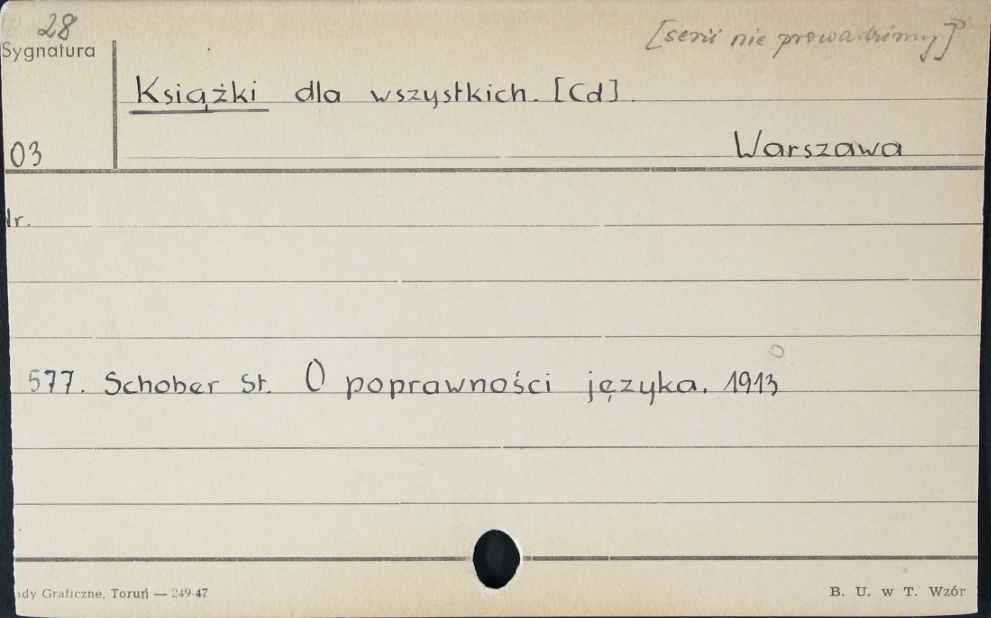 28
[serii nie prowadzimy]
Sygnatura
Książki dla wszystkich. [Cd].
03
Warszawa
Nr.
577. Schober St. O poprawności języka. 1913
ady Graficzne, Toruń — 249-47
B. U. w T. Wzór